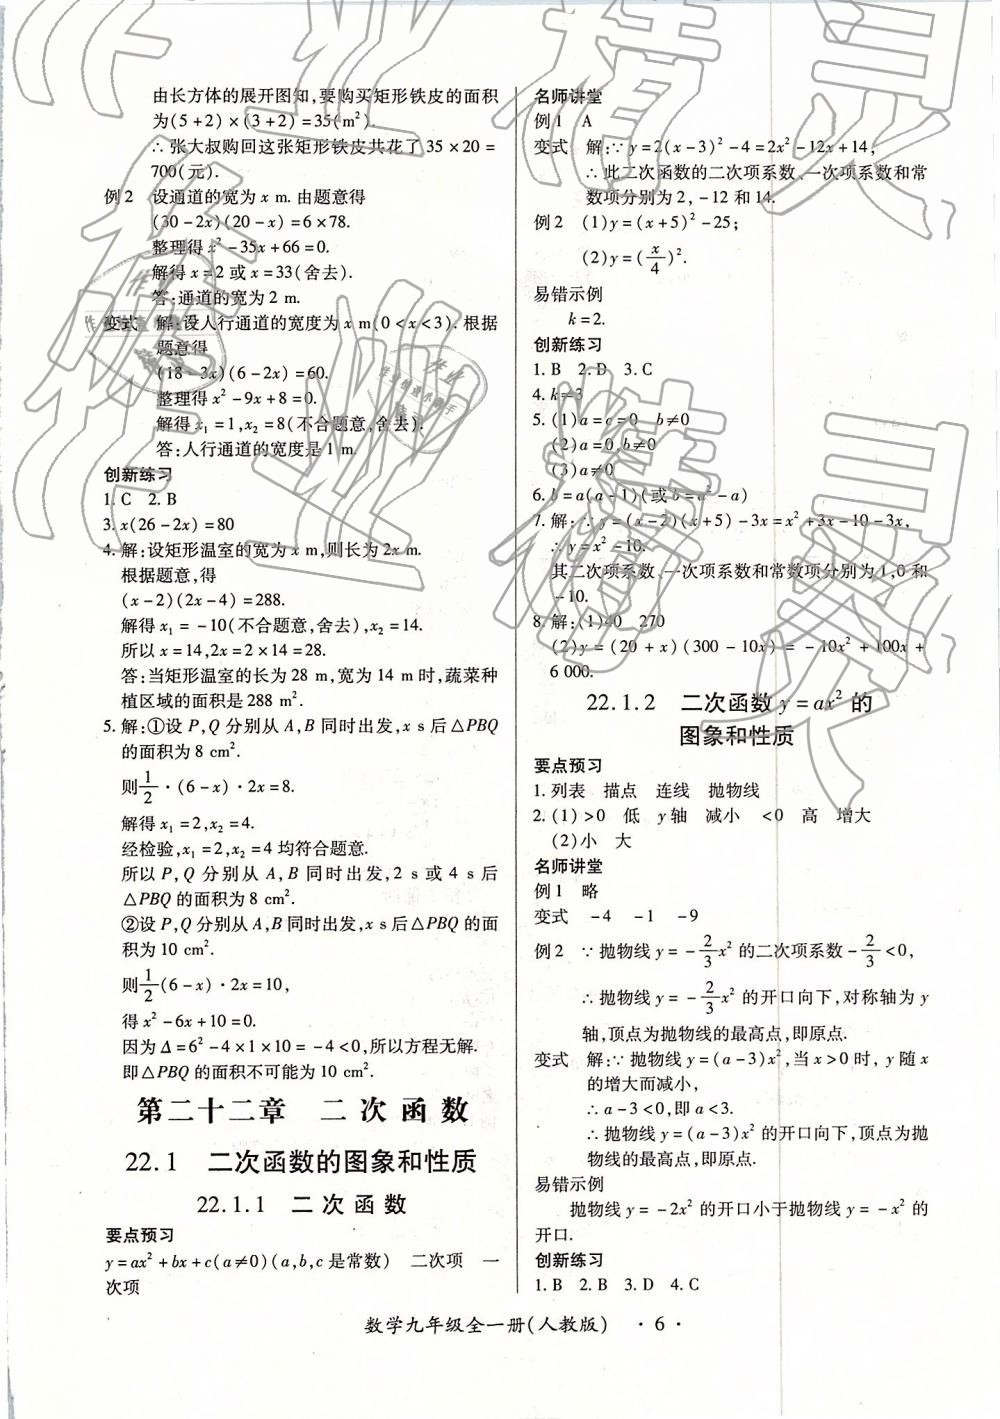 由长方体的展开图知,要购买矩形铁皮的面积
为(5+2)×(3+2)=35(m²).
∴张大叔购回这张矩形铁皮共花了35×20=
700(元).
例2 设通道的宽为x m.由题意得
(30-2x)(20-x)=6×78.
整理得x²-35x+66=0.
解得x=2或x=33(舍去).
答:通道的宽为2 m.
变式 解:设人行通道的宽度为x m(0<x<3).根据
题意得
(18-3x)(6-2x)=60.
整理得x²-9x+8=0.
解得x₁=1,x₂=8(不合题意,舍去).
答:人行通道的宽度是1 m.
创新练习
1.C 2.B
3.x(26-2x)=80
4.解:设矩形温室的宽为x m,则长为2x m.
根据题意,得
(x-2)(2x-4)=288.
解得x₁=-10(不合题意,舍去),x₂=14.
所以x=14,2x=2×14=28.
答:当矩形温室的长为28 m,宽为14 m时,蔬菜种
植区域的面积是288 m².
5.解:①设P,Q分别从A,B同时出发,x s后△PBQ
的面积为8 cm².
则1/2·(6-x)·2x=8.
解得x₁=2,x₂=4.
经检验,x₁=2,x₂=4均符合题意.
所以P,Q分别从A,B同时出发,2 s或4 s后
△PBQ的面积为8 cm².
②设P,Q分别从A,B同时出发,x s后△PBQ的面
积为10 cm².
则1/2(6-x)·2x=10,
得x²-6x+10=0.
因为Δ=6²-4×1×10=-4<0,所以方程无解.
即△PBQ的面积不可能为10 cm².
第二十二章 二次函数
22.1 二次函数的图象和性质
22.1.1 二次函数
要点预习
y=ax²+bx+c(a≠0)(a,b,c是常数) 二次项 一
次项
名师讲堂
例1 A
变式 解:∵y=2(x-3)²-4=2x²-12x+14,
∴此二次函数的二次项系数、一次项系数和常
数项分别为2,-12和14.
例2 (1)y=(x+5)²-25;
(2)y=(x/4)².
易错示例
k=2.
创新练习
1.B 2.D 3.C
4.k=3
5.(1)a=c=0 b≠0
(2)a=0,b≠0
(3)a≠0
6.b=a(a-1)(或b=a²-a)
7.解:∵y=(x-2)(x+5)-3x=x²+3x-10-3x,
∴y=x²-10.
其二次项系数、一次项系数和常数项分别为1,0和
-10.
8.解:(1)40 270
(2)y=(20+x)(300-10x)=-10x²+100x+
6 000.
22.1.2 二次函数y=ax²的
图象和性质
要点预习
1.列表 描点 连线 抛物线
2.(1)>0 低 y轴 减小 <0 高 增大
(2)小 大
名师讲堂
例1 略
变式 -4 -1 -9
例2 ∵抛物线y=-2/3x²的二次项系数-2/3<0,
∴抛物线y=-2/3x²的开口向下,对称轴为y
轴,顶点为抛物线的最高点,即原点.
变式 解:∵抛物线y=(a-3)x²,当x>0时,y随x
的增大而减小,
∴a-3<0,即a<3.
∴抛物线y=(a-3)x²的开口向下,顶点为抛
物线的最高点,即原点.
易错示例
抛物线y=-2x²的开口小于抛物线y=-x²的
开口.
创新练习
1.B 2.B 3.D 4.C
数学九年级全一册(人教版) ·6·